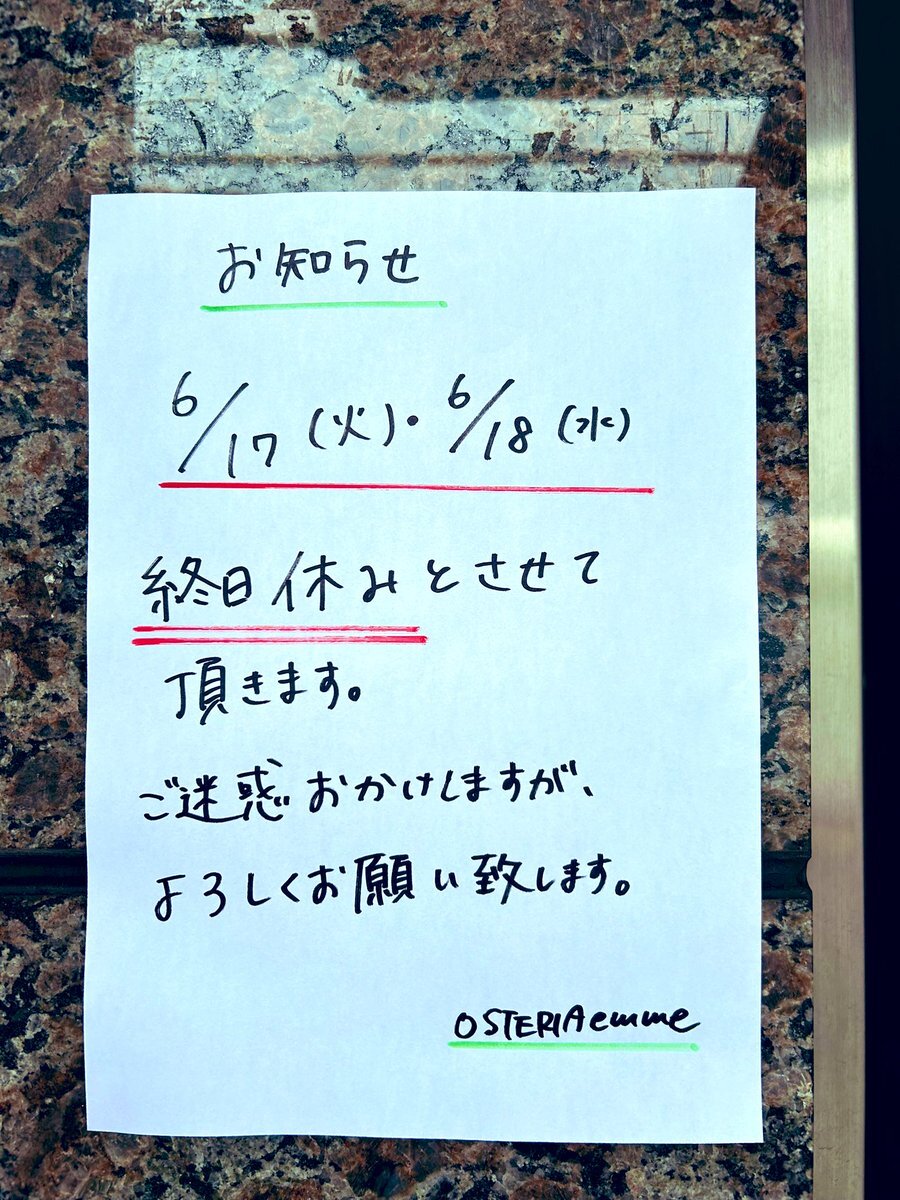 お知らせ
6/17(火)・6/18(水)
終日休みとさせて
頂きます。
ご迷惑おかけしますが、
よろしくお願い致します。
OSTERIAemme